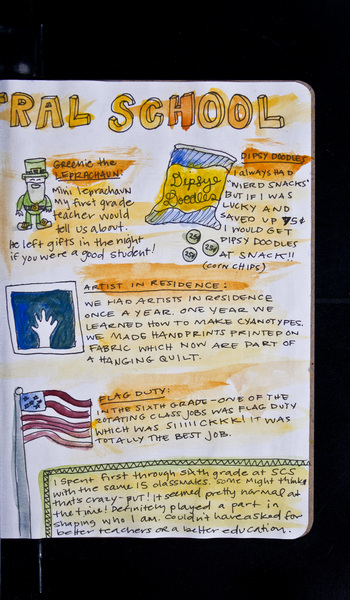 RAL SCHOOL
GREENIE THE
LEPRECHAUN:
Mini leprechaun
My first grade
teacher would
tell us about.
He left gifts in the night
if you were a good student!
Dipsye
Doodles
25¢
25¢
25¢
DIPSY DOODLES
I ALWAYS HAD
"WIERD SNACKS"
BUT IF I WAS
LUCKY AND
SAVED UP 75¢
I WOULD GET
DIPSY DOODLES
AT SNACK!!
(CORN CHIPS)
ARTIST IN RESIDENCE:
WE HAD ARTISTS IN RESIDENCE
ONCE A YEAR. ONE YEAR WE
LEARNED HOW TO MAKE CYANOTYPES.
WE MADE HANDPRINTS PRINTED ON
FABRIC WHICH NOW ARE PART OF
A HANGING QUILT.
FLAG DUTY:
IN THE SIXTH GRADE-ONE OF THE
ROTATING CLASS JOBS WAS FLAG DUTY
WHICH WAS SIIIICKKK! IT WAS
TOTALLY THE BEST JOB.
I spent first through sixth grade at SCS
with the same 15 classmates. Some might think
that's crazy-but! It seemed pretty normal at
the time! Definitely played a part in
shaping who I am. Couldn't have asked for
better teachers or a better education.